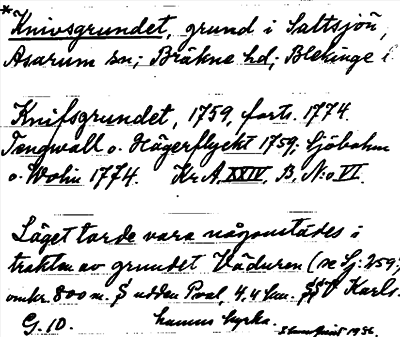 * Knivsgrundet, grund i Saltsjön,
Asarum sn; Bräkne hd; Blekinge l.
Knifsgrundet, 1759, forts. 1774.
Tengwall o. Hägerflyckt 1759; Sjöbohm
o. Wohin 1774. Kr. A. XXIV, B, N:o VI.
Läget torde vara någonstädes i
trakten av grundet Väduren (se Sj: 259;
omkr. 800 m. S udden Pval, 4,4 km. Karls-
G. 10. hamns kyrka. 1936.